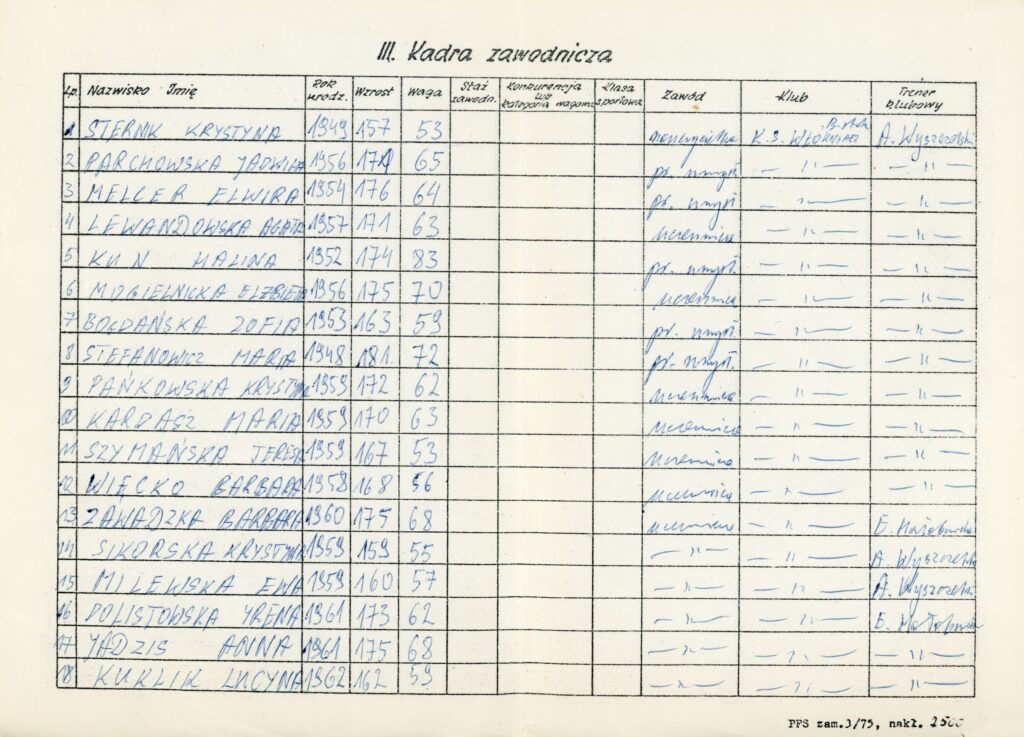 III. Kadra zawodnicza
Lp. Nazwisko Imię Rok urodz. Wzrost Waga Staż zawodn. Konkurencja lub kategoria wagowa Klasa sportowa Zawód Klub Trener klubowy
1 STERNIK KRYSTYNA 1949 157 53 nauczycielka K.S. WŁÓKNIARZ B-stok A. Wyszczelski
2 PARCHOWSKA JADWIGA 1956 171 65 pr. umysł. — " — — " —
3 MELCER ELWIRA 1954 176 64 pr. umysł — " — — " —
4 LEWANDOWSKA AGATA 1957 171 63 uczennica — " — — " —
5 KUN HALINA 1952 174 83 pr. umysł. — " — — " —
6 MOGIELNICKA ELŻBIETA 1956 175 70 uczennica — " — — " —
7 BOŁDAŃSKA ZOFIA 1953 163 59 pr. umysł. — " — — " —
8 STEFANOWICZ MARIA 1948 181 72 pr. umysł. — " — — " —
9 PAŃKOWSKA KRYSTYNA 1959 172 62 uczennica — " — — " —
10 KARDASZ MARIA 1959 170 63 uczennica — " — — " —
11 SZYMAŃSKA TERESA 1959 167 53 uczennica — " — — " —
12 WIĘCKO BARBARA 1958 168 56 uczennica — " — — " —
13 ZAWADZKA BARBARA 1960 175 68 uczennica — " — E.
14 SIKORSKA KRYSTYNA 1959 159 55 — " — — " — A. Wyszczelski
15 MILEWSKA EWA 1959 160 57 — " — — " — A. Wyszczelski
16 POLISTOWSKA YRENA 1961 173 62 — " — — " — E.
17 JADZIS ANNA 1961 175 68 — " — — " — — " —
18 KUKLIK LUCYNA 1962 162 59 — " — — " — — " —
PFS zam.3/75, nakł. 2500